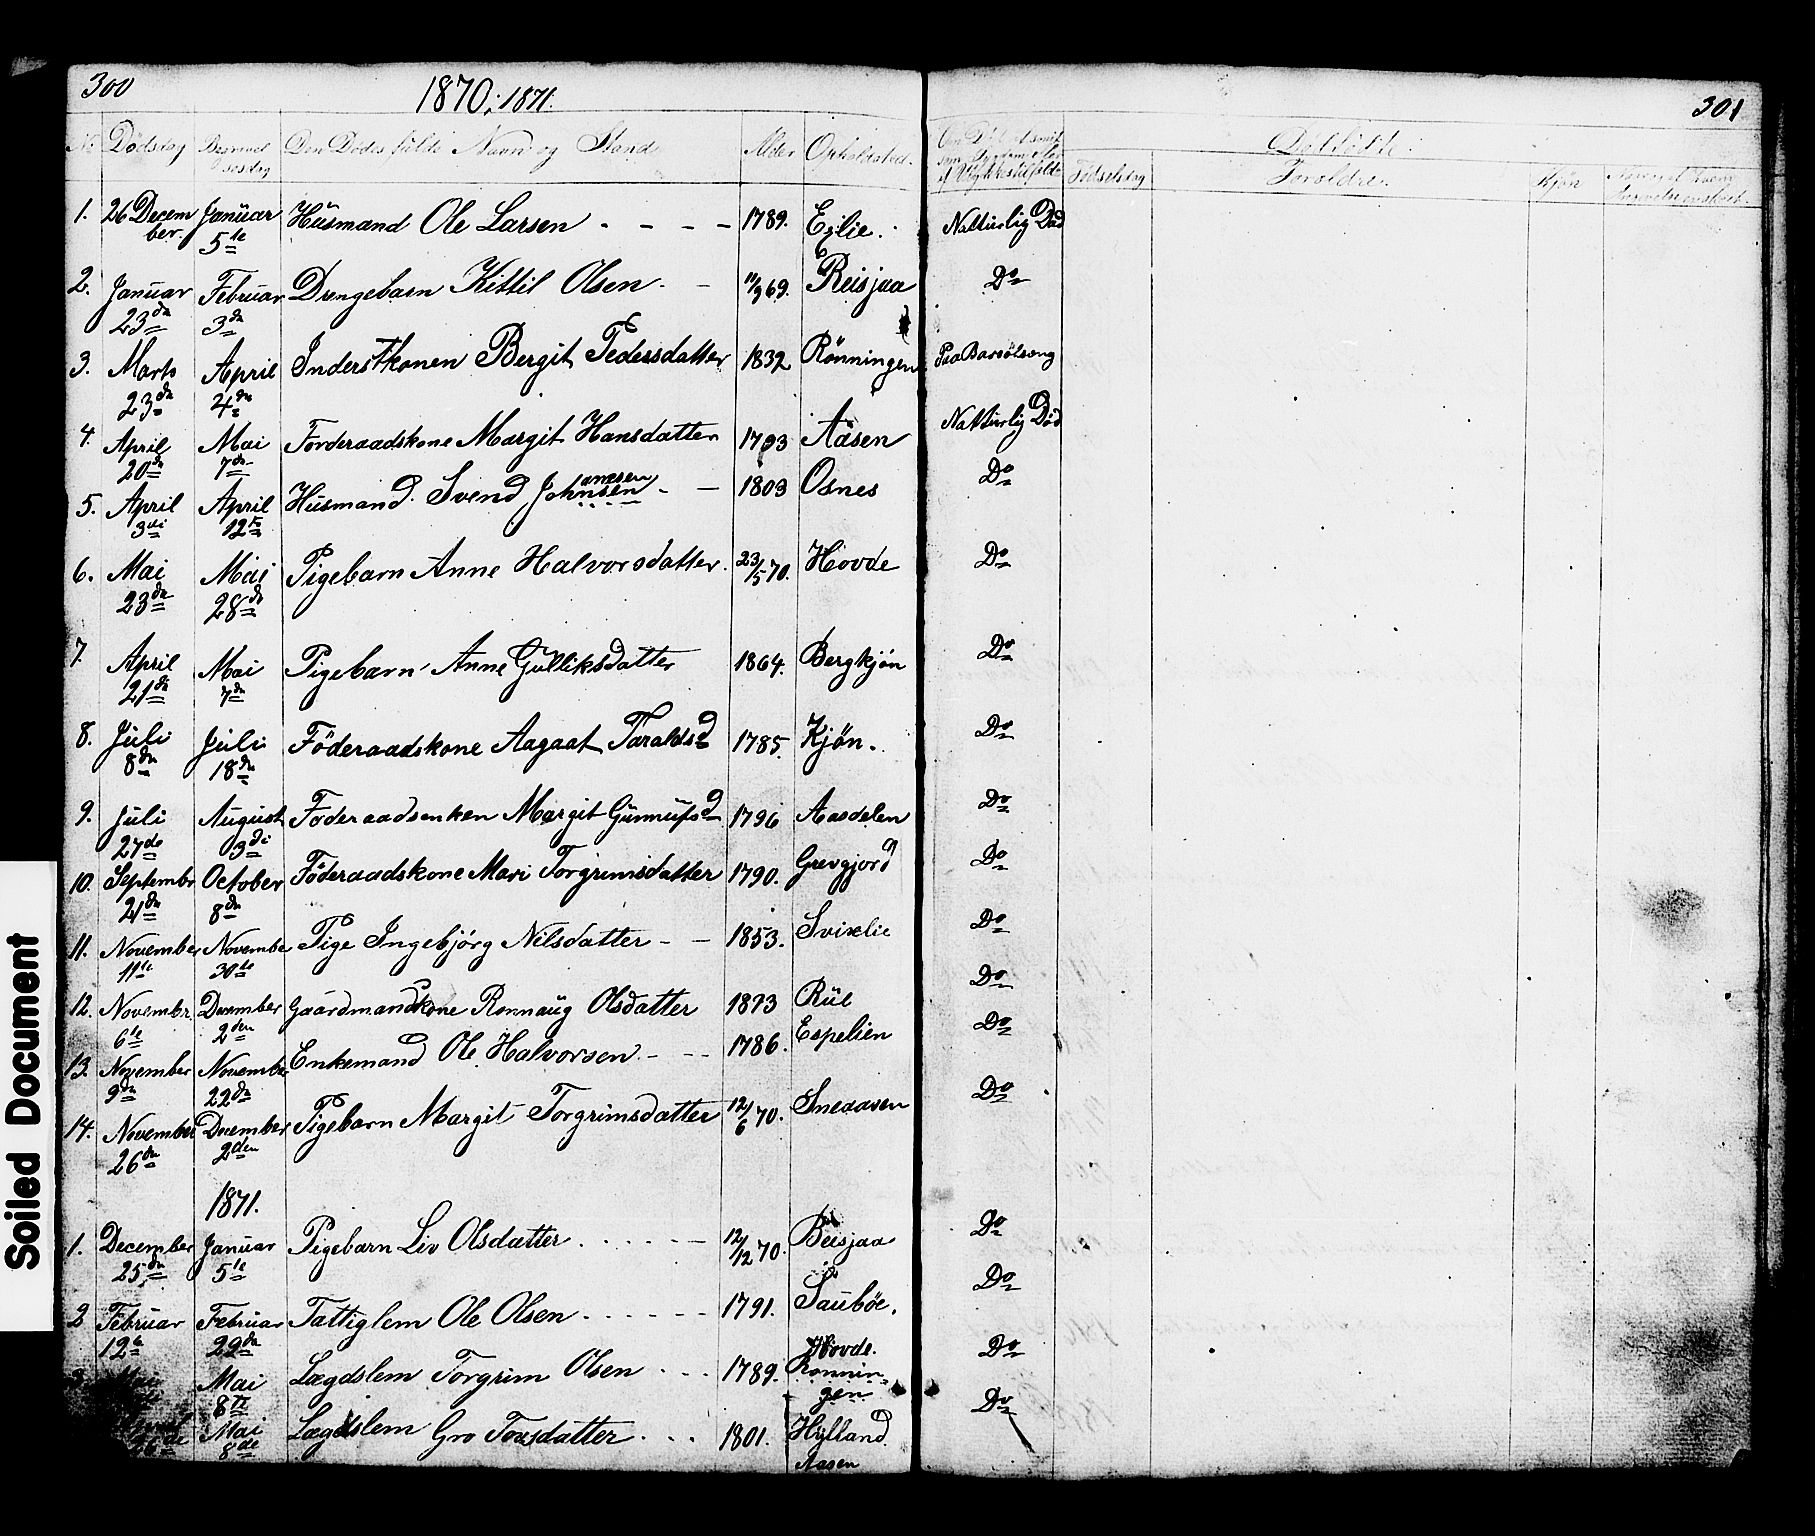 300
1870; 1871.
301
No Dödsdag Begravelsesdag Den Dödes fulde Navn og Stand Alder Opholdssted.
Dödfödte.
Födselsdag Foreldre. Kjön
1. 26 December. Januar 5te Husmand Ole Larsen - - - - 1789. Eglie. Natturlig Död
2. Januar 23dn Februar 3dn Drengebarn Kittil Olsen. - 11/9 69. Reisjaa Do
3. Marts 23dn April 4dn Inderstkonen Bergit Pedersdatter 1832 Rönningen Paa Barsölseng
4. April 20dn Mai 7dn Forderaadskone Margit Hansdatter 1793 Aasen Natturlig Död
5. April 3di April 12te Husmand Svend Johnsen anesen - - 1803 Osnes Do
6. Mai 23dn Mai 28dn Pigebarn Anne Halvorsdatter. 23/5 70. Hovde Do
7. April 21dn Mai 7dn Pigebarn Anne Gulliksdatter 1864. Bergkjön Do
8. Juli 8dn Juli 18dn Föderaadskone Aagaat Taraldsd 1785. Kjön. Do
9. Juli 27de August 3di Foderaadsenken Margit Gunnufsd 1796 Aasdelen Do
10. Septembr 21dn October 8dn Föderaadskone Mari Torgrimsdatter 1790. Grevgjord Do
11. November 11te Novembe 30te Pige Ingebjörg Nilsdatter - - 1853. Svixlie Do
12. Novembr. 6te December 2den Gaardmandskone Ronnaug Olsdatter 1823 Rul Do
13. November 9dn Novembe 22dn Enkemand Ole Halvorsen - - - 1786. Espelien Do
14. November 26dn December 2den Pigebarn Margit Torgrimsdatter 12/6 70. Sneaasen Do
1871.
1. December 25dn Januar 5te Pigebarn Liv Olsdatter . . . . . - - 12/12 70. Reisjaa Do
2 Februar 12te Februar 22dn Fattiglem Ole Olsen . . . . - - 1791. Sauböe. Do
3. Mai Mai 8te Lægdslem Torgrim Olsen . . . 1789. Hovde. Ronningen Do
Mai 8de Lægdslem Gro Torsdatter . . . 1801. Hylland Aasen Do
Soiled Document